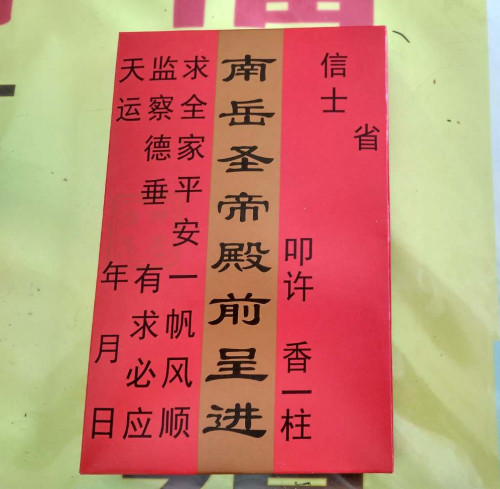 省
信士
叩许 香一柱
南岳圣帝殿前呈进
求全家平安一帆风顺
监察德垂有求必应
天运 年 月 日